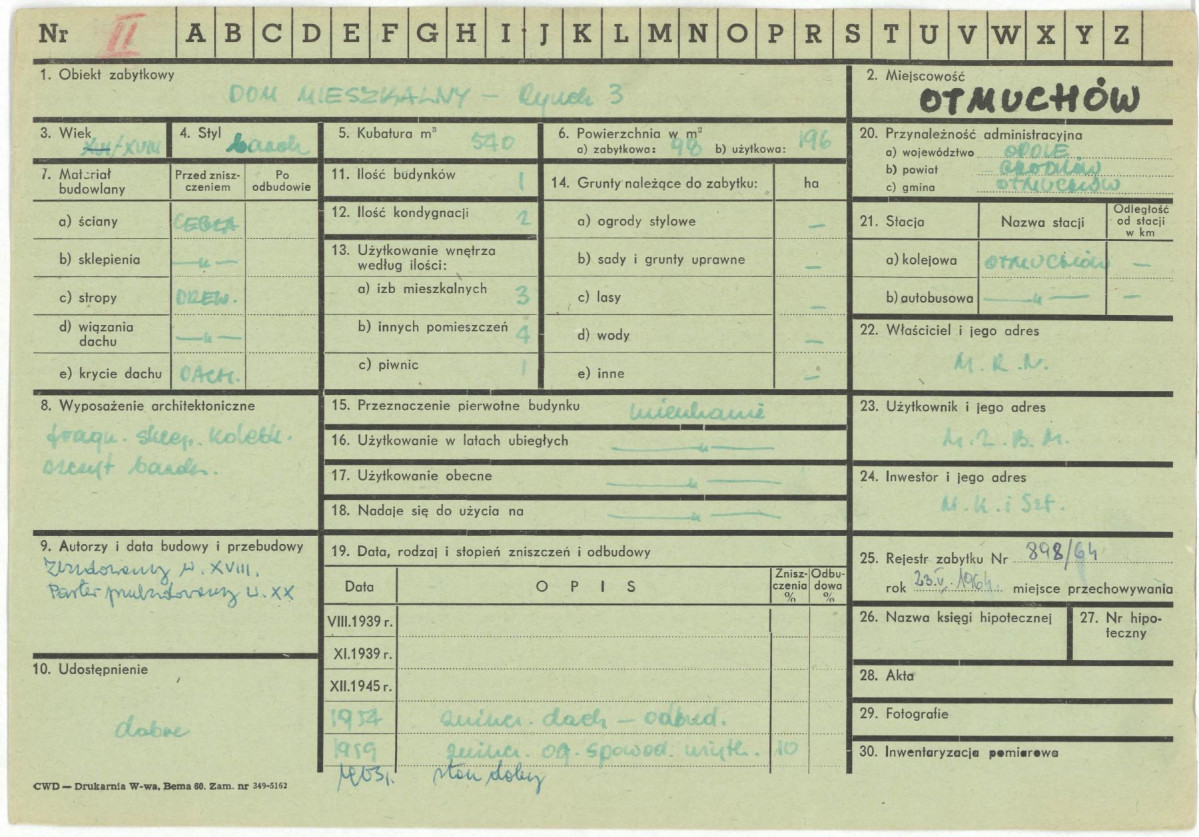 Nr II A B C D E F G H I J K L M N O P R S T U V W X Y Z
1. Obiekt zabytkowy
DOM MIESZKALNY — Rynek 3
2. Miejscowość
OTMUCHÓW
3. Wiek
XVII/XVIII
4. Styl
barok
5. Kubatura m³
540
6. Powierzchnia w m²
a) zabytkowa: 98 b) użytkowa: 196
20. Przynależność administracyjna
a) województwo OPOLE
b) powiat GRODKÓW
c) gmina OTMUCHÓW
7. Materiał budowlany
Przed zniszczeniem
Po odbudowie
a) ściany CEGŁA
b) sklepienia —„—
c) stropy DREW.
d) wiązania dachu —„—
e) krycie dachu DACH.
11. Ilość budynków 1
12. Ilość kondygnacji 2
13. Użytkowanie wnętrza
według ilości:
a) izb mieszkalnych 3
b) innych pomieszczeń 4
c) piwnic 1
14. Grunty należące do zabytku: ha
a) ogrody stylowe —
b) sady i grunty uprawne —
c) lasy —
d) wody —
e) inne —
21. Stacja Nazwa stacji Odległość od stacji w km
a) kolejowa OTMUCHÓW —
b) autobusowa —„— —
22. Właściciel i jego adres
M.R.N.
8. Wyposażenie architektoniczne
fragm. sklep. kolebk.
szczyt barok.
15. Przeznaczenie pierwotne budynku mieszkanie
16. Użytkowanie w latach ubiegłych —„—
17. Użytkowanie obecne —„—
18. Nadaje się do użycia na —„—
23. Użytkownik i jego adres
M.Z.B.M.
24. Inwestor i jego adres
M.K. i Szt.
9. Autorzy i data budowy i przebudowy
Zbudowany w. XVIII.
Parter przebudowany w. XX
19. Data, rodzaj i stopień zniszczeń i odbudowy
Data OPIS Zniszczenia % Odbudowa %
VIII.1939 r.
XI.1939 r.
XII.1945 r.
1954 zniszcz. dach — odbud.
1959 zniszcz. og. spowod. użytk. 10
1963 r. stan dobry
25. Rejestr zabytku Nr 898/64
rok 23.V.1964 miejsce przechowywania
26. Nazwa księgi hipotecznej
27. Nr hipoteczny
28. Akta
29. Fotografie
30. Inwentaryzacja pomiarowa
10. Udostępnienie
dobre
CWD — Drukarnia W-wa, Bema 60. Zam. nr 349-5162